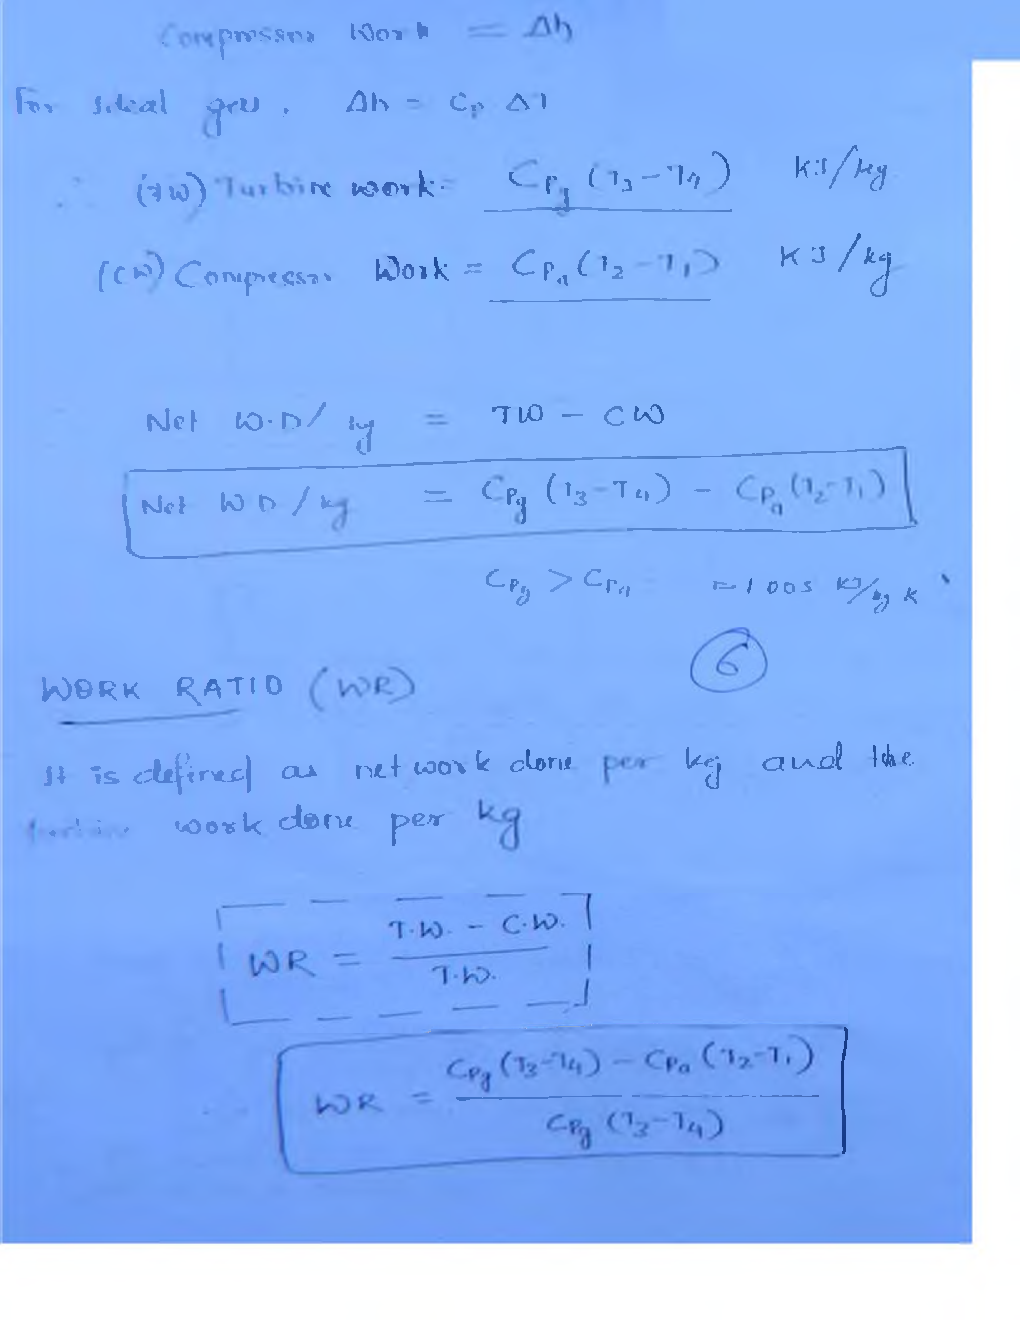 Compressor Work = Δh
For ideal gas, Δh = Cp ΔT
∴ (TW) Turbine work = Cpg (T3 - T4) KJ/kg
(CW) Compressor Work = Cpa (T2 - T1) KJ/kg
Net W.D/kg = TW - CW
Net WD/kg = Cpg (T3-T4) - Cpa (T2-T1)
Cpg > Cpa = 1.005 KJ/kg K
6
WORK RATIO (WR)
It is defined as net work done per kg and the
turbine work done per kg
WR = T.W. - C.W. / T.W.
WR = Cpg (T3-T4) - Cpa (T2-T1) / Cpg (T3-T4)